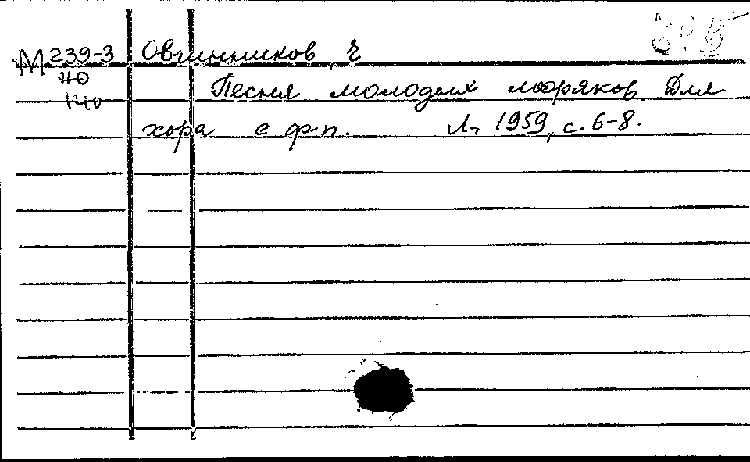 М 239-3 Овчинников, Ч
40 Песня молодых моряков Для
140 хора с ф-п. Л., 1959, с. 6-8.